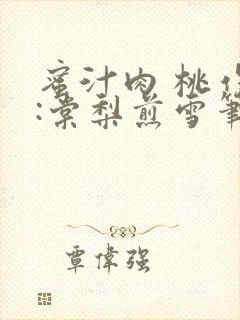 蜜汁肉桃作
:棠梨煎雪筆
覃偉强